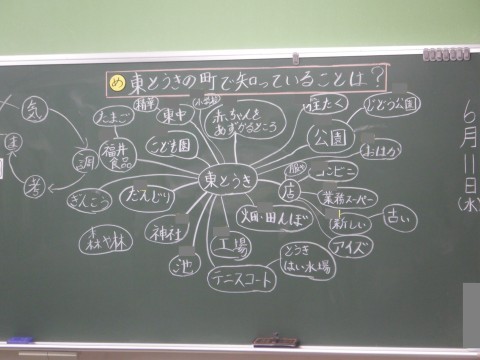 め 東とうきの町で知っていることは？
6月11日(水)
気
調
考
たまご
精華
東中
赤ちゃんを
あずかるところ
住たく
じどう公園
公園
おはか
福井
食品
こども園
東とうき
服や
コンビニ
店
業務スーパー
ぎんこう
だんじり
畑・田んぼ
新しい
古い
アイズ
森や林
神社
工場
とうき
はい水場
池
テニスコート